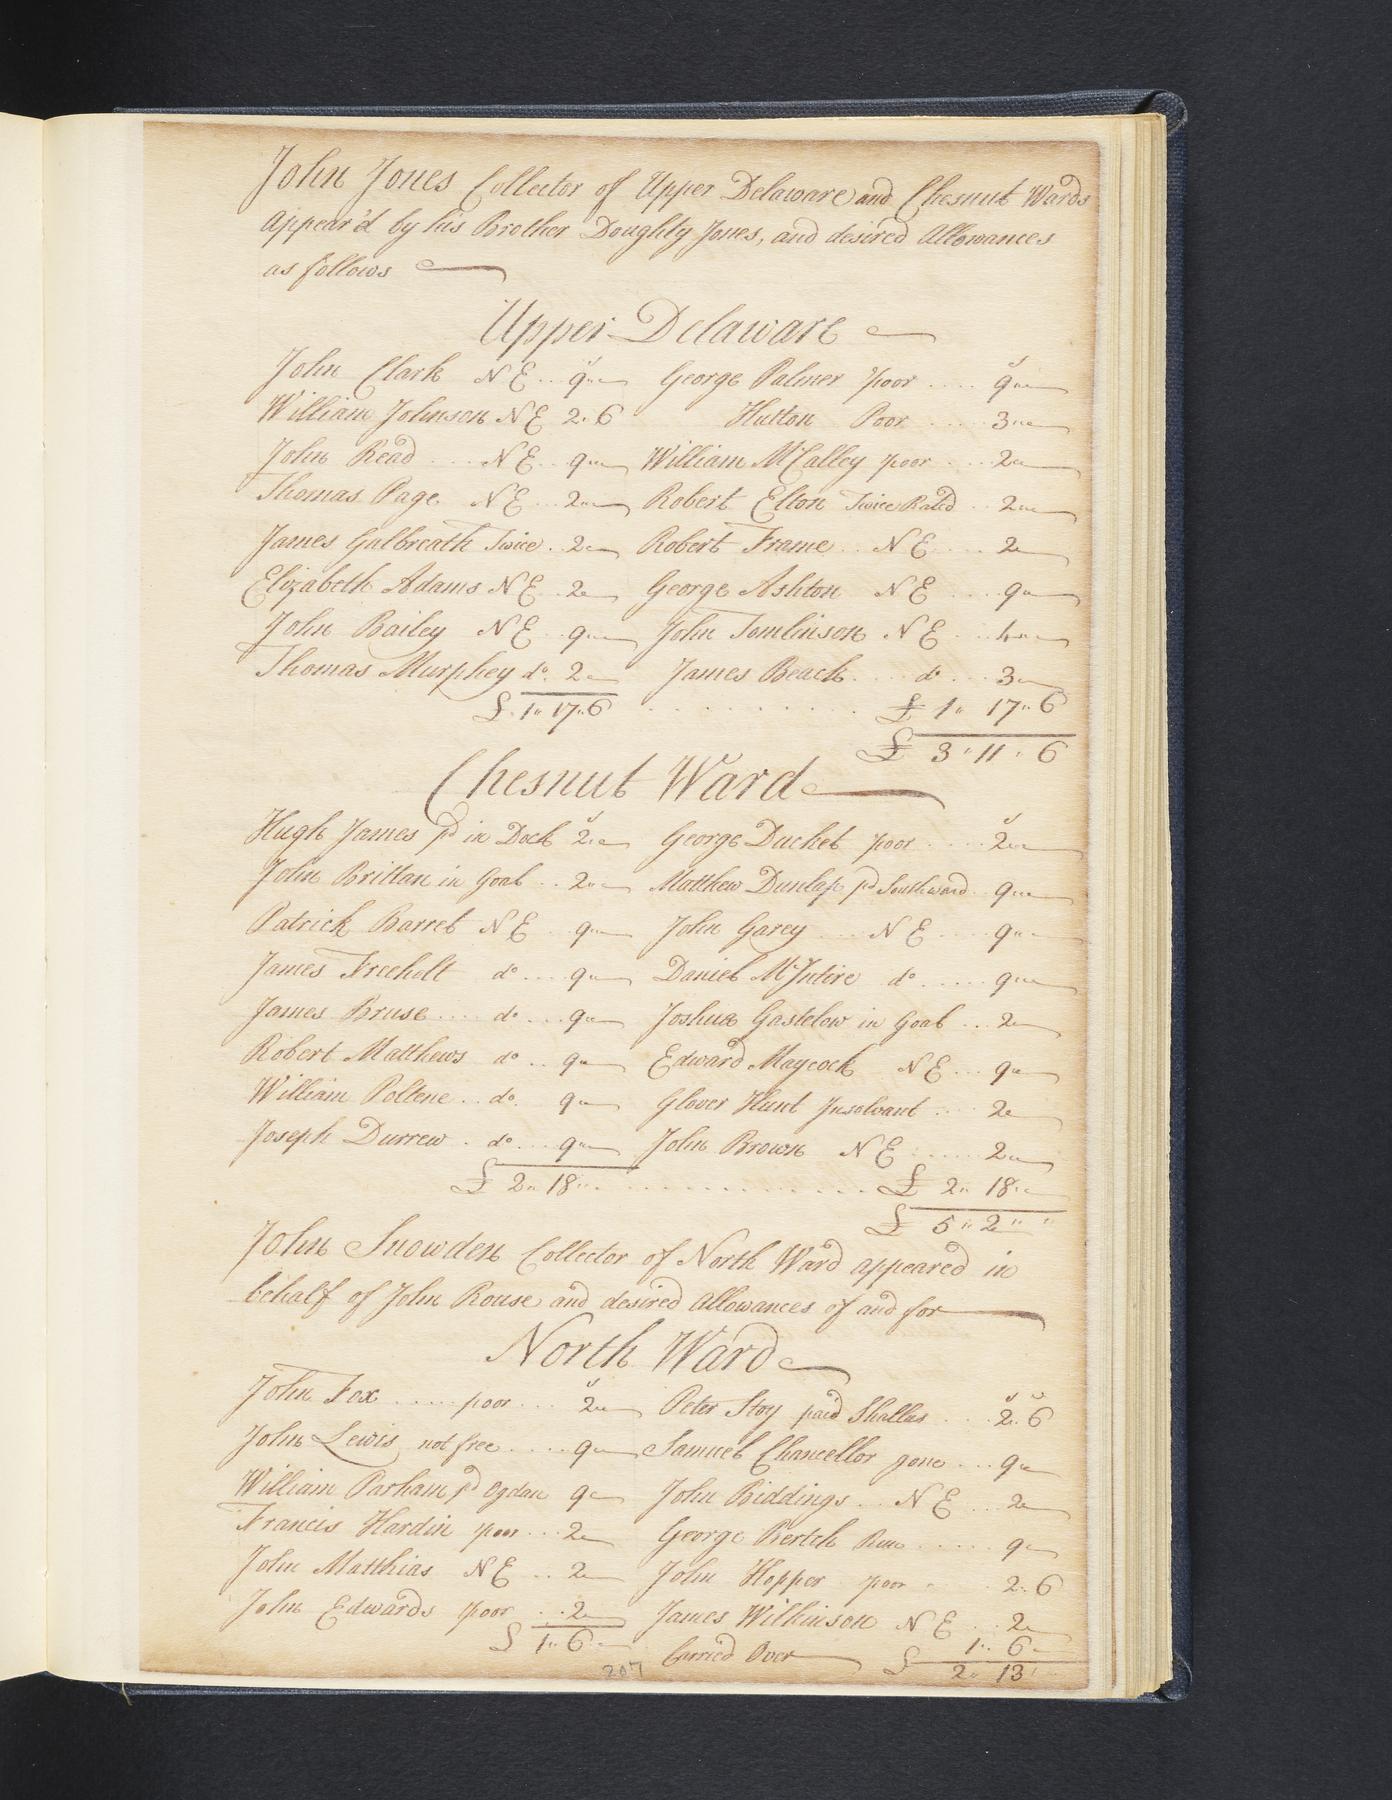 John Jones Collector of Upper Delaware and Chesnut Wards
Appear'd by his Brother Doughty Jones, and desired Allowances
as follows
Upper Delaware
John Clark NE .. 9 George Palmer poor .... 9
William Johnson NE 2.6 Hutton Poor .... 3
John Read .... NE .. 9 William McCalley poor ... 2
Thomas Page NE ... 2 Robert Elton Twice Rated .. 2
James Galbreath Twice .. 2 Robert Frame .. NE .... 2
Elizabeth Adams NE .. 2 George Ashton NE .... 9
John Bailey NE .. 9 John Tomlinson NE ...
Thomas Murphey do. 2 James Beack .... do ... 3
£ 1" 17" 6 . . . . . . . £ 1" 17" 6
£ 3 " 11 " 6
Chesnut Ward
Hugh James pd in Dock 2 George Ducket poor .... 2
John Brittan in Goal .. 2 Matthew Dunlap pd Southward .. 9
Patrick Barret NE .. 9 John Garey .... NE .... 9
James Freeholt do ... 9 Daniel McIntire do ..... 9
James Bruse .... do ... 9 Joshua Gastelow in Goal ... 2
Robert Matthews do .. 9 Edward Maycock NE ... 9
William Poltene .. do. 9 Glover Hunt Insolvant .... 2
Joseph Durrew . do ... 9 John Brown NE ..... 2
£ 2" 18" . . . . . . . . £ 2" 18"
£ 5 " 2 " "
John Snowden Collector of North Ward appeared in
behalf of John Rouse and desired Allowances of and for
North Ward
John Fox ..... poor ... 2 Peter Stoy paid Shallus .... 2.6
John Lewis not free .... 9 Samuel Chancellor gone ... 9
William Parham pd Ogdan 9 John Biddings .. NE ... 2
Francis Hardin poor ... 2 George Bertch Run ..... 9
John Matthias NE .. 2 John Hopper poor .... 2.6
John Edwards poor .. 2 James Wilkinson NE .. 2
£ 1" 6 Carried Over 1" 6
£ 2" 13
207